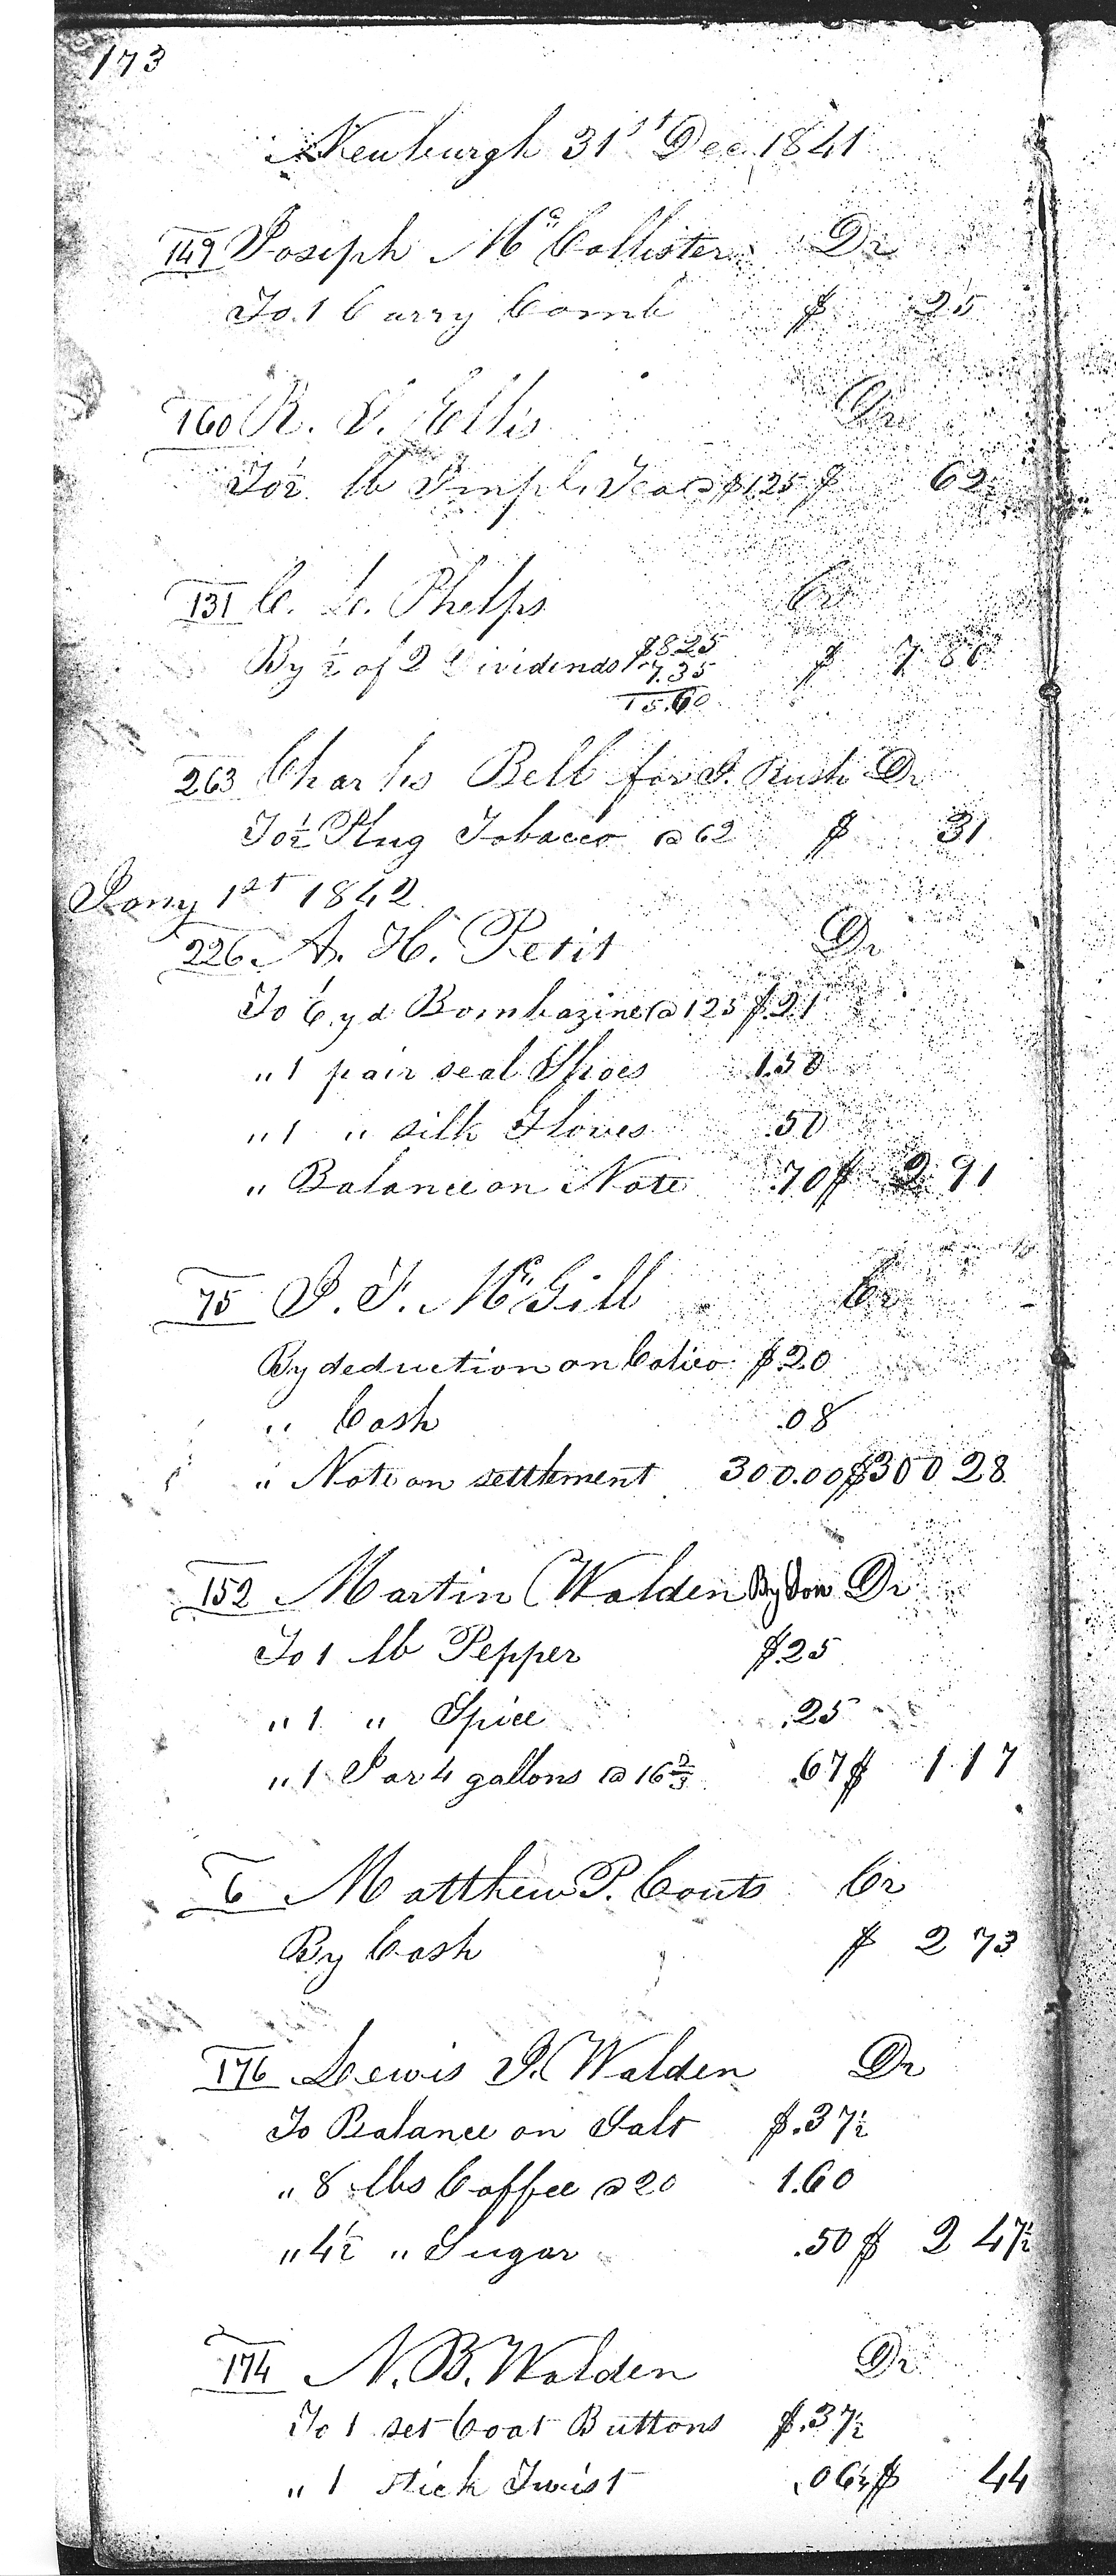 173
Newburgh 31st Dec. 1841
149 Joseph McCollister Dr
To 1 Curry Comb $ 25
160 R. S. Ellis Dr
To ½ lb Impl. Tea @ $125 $ 62½
131 C. L. Phelps Cr
By ½ of 2 Dividends $8.25 $ 7.80
7.35
15.60
263 Charles Bell for J. Rush Dr
To ½ Plug Tobacco @ 62 $ 31
Jany 1st 1842
226 A. H. Petit Dr
To 6 yd Bombazine @ 125 $.21
" 1 pair seal Shoes 1.50
" 1 " silk Gloves .50
" Balance on Note .70 $ 2 91
75 J. F. McGill Cr
By deduction on Calico $.20
" Cash .08
" Note on settlement 300.00 $300 28
152 Martin Walden By Son Dr
To 1 lb Pepper $.25
" 1 " Spice .25
" 1 Jar 4 gallons @ 16⅔ .67 $ 1.17
6 Matthew P. Couts Cr
By Cash $ 2 73
176 Lewis J. Walden Dr
To Balance on Salt $.37½
" 8 lbs Coffee @ 20 1.60
" 4½ " Sugar .50 $ 2 47½
174 N. B. Walden Dr
To 1 set Coat Buttons $.37½
" 1 stick Twist .06½ $ 44